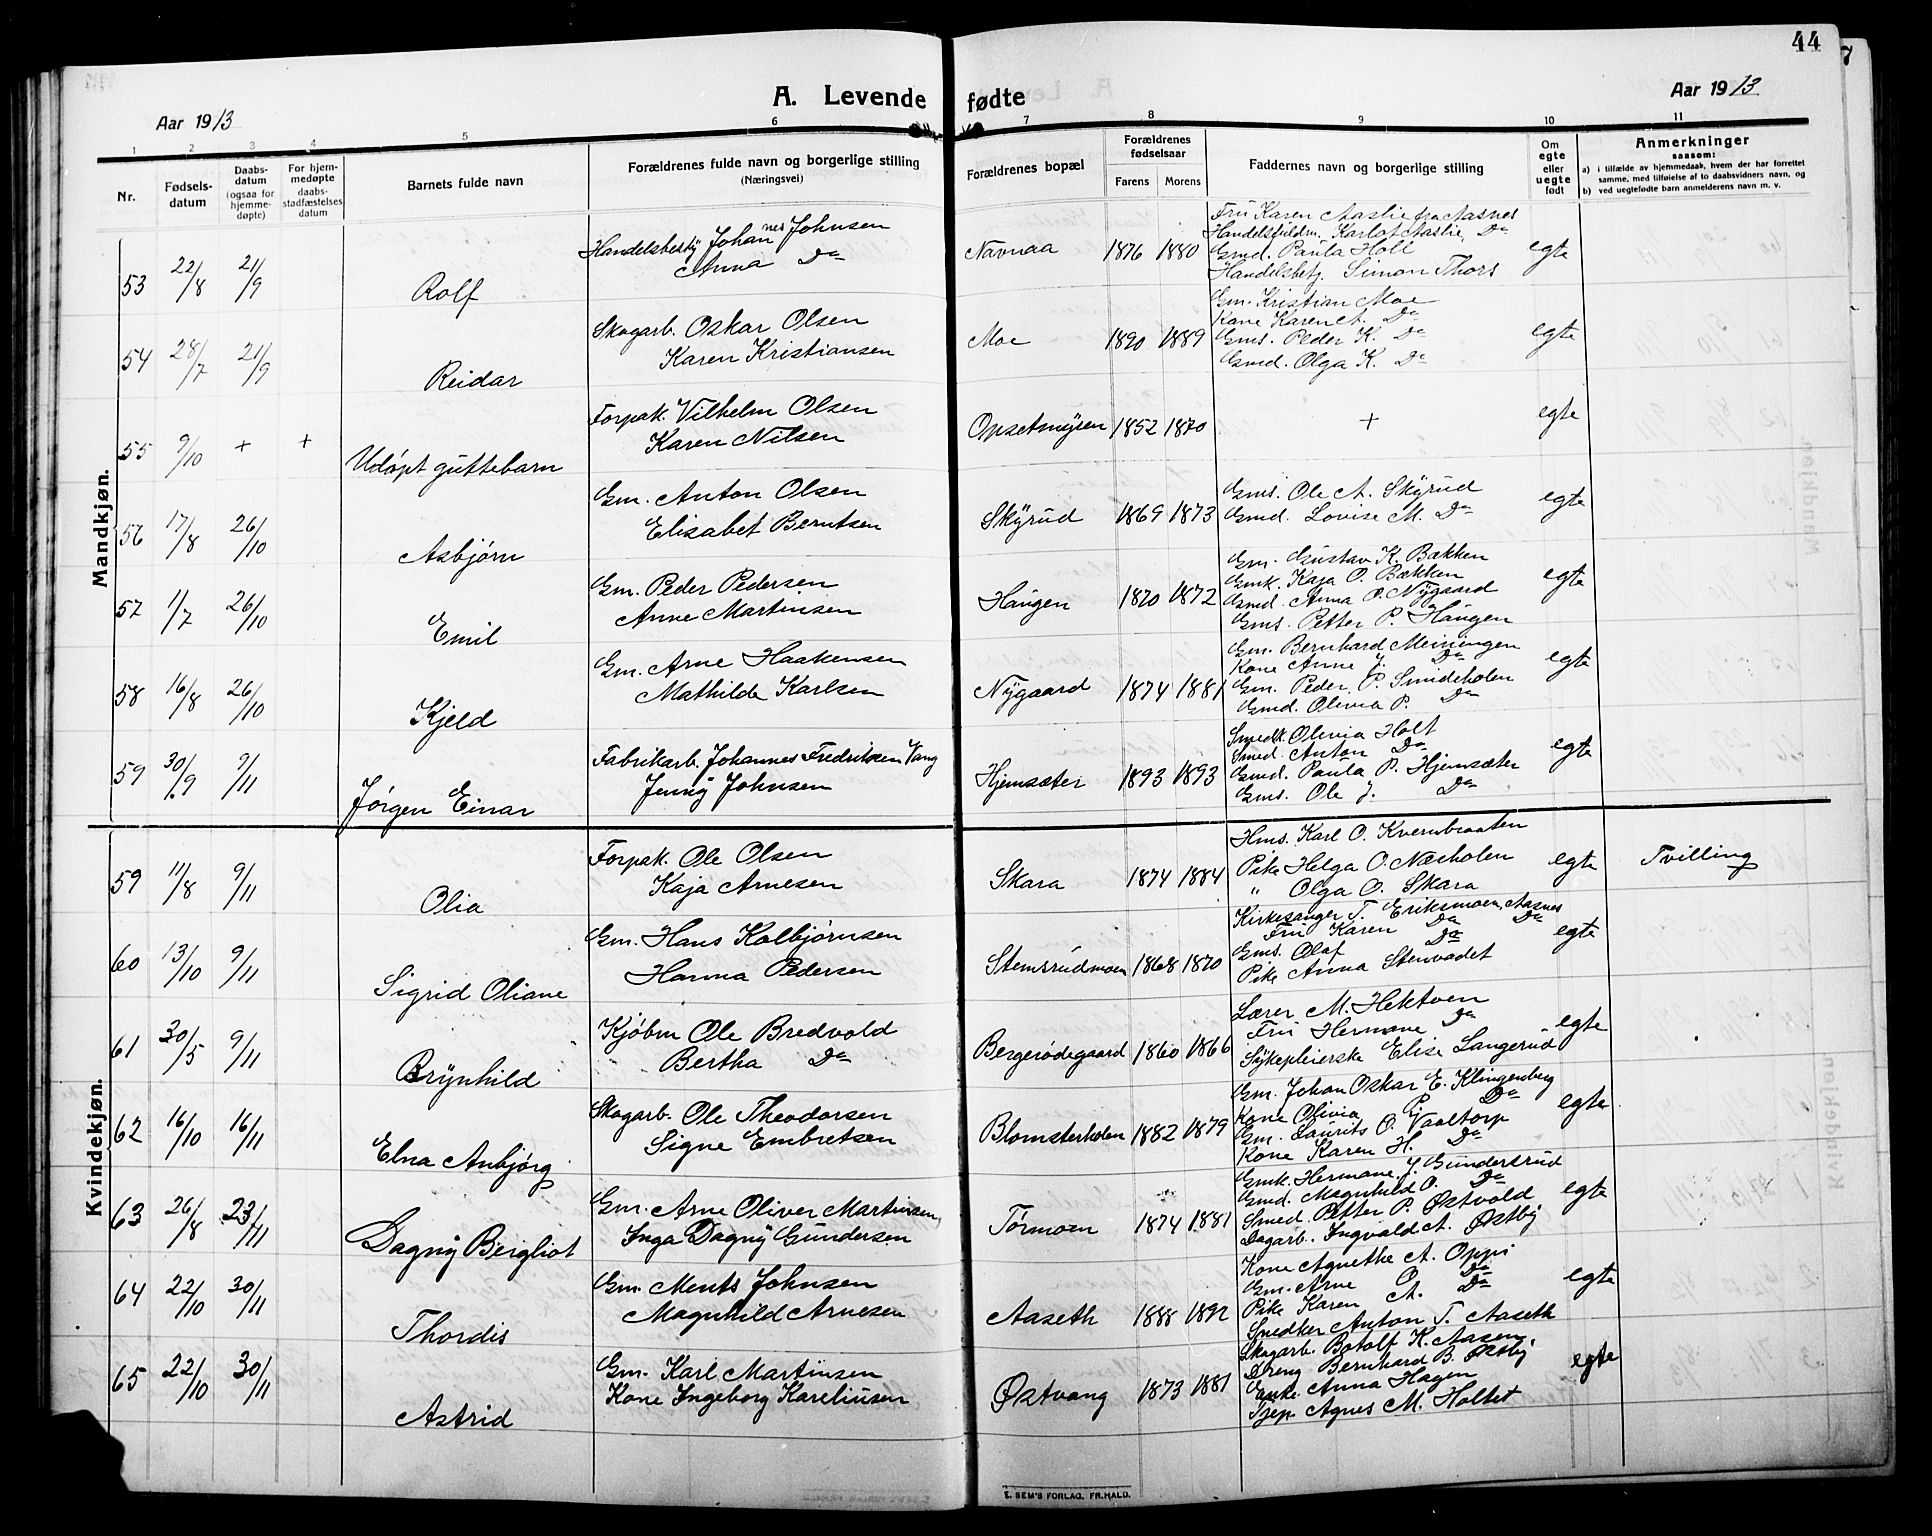 44
A. Levende fødte
Aar 1913
Aar 1913
1 2 3 4 5 6 7 8 9 10 11
Nr.
Fødsels-
datum
Daabs-
datum
(ogsaa for
hjemme-
døpte)
For hjem-
medøpte
daabs-
stadfæstelses
datum
Barnets fulde navn
Forældrenes fulde navn og borgerlige stilling
(Næringsvei)
Forældrenes bopæl
Forældrenes
fødselsaar
Farens Morens
Faddernes navn og borgerlige stilling
Om
egte
eller
uegte
født
Anmerkninger
saasom:
a) i tilfælde av hjemmedaab, hvem der har forrettet
samme, med tilføielse af to daabsvidners navn, og
b) ved uegtefødte barn anmelderens navn m. v.
Mandkjøn.
53 22/8 21/9 Rolf
Handelsbesty Johannes Johnsen
Anna Do
Navnaa 1876 1880
Fru Karen Aaslie fra Aasnes
Handelsfuldm. Karlot Aaslie, Do
Gmd. Paula Holt
Handelsbetj. Simon Thors
egte
54 28/7 21/9 Reidar
Skogarb. Oskar Olsen
Karen Kristiansen
Moe 1890 1889
Gm. Kristian Moe
Kone Karen A. Do
Gms. Peder K. Do
Gmd. Olga K. Do
egte
55 9/10 + + Udøpt guttebarn
Forpak. Vilhelm Olsen
Karen Nilsen
Opsetmyren 1852 1870
+
egte
56 17/8 26/10 Asbjørn
Gm. Anton Olsen
Elisabet Berntsen
Skyrud 1869 1873
Gms. Ole A. Skyrud
Gmd. Lovise M. Do
egte
57 1/7 26/10 Emil
Gm. Peder Pedersen
Anne Martinsen
Haugen 1870 1872
Gm. Gustav K. Bækken
Gmk. Kaja O. Bækken
Gmd. Anna O. Nygaard
Gms. Petter P. Haugen
egte
58 16/8 26/10 Kjeld
Gm. Arne Haakensen
Mathilde Karlsen
Nygaard 1874 1881
Gm. Bernhard Meiningen
Kone Anne J. Do
Gm. Peder P. Smideholen
Gmd. Olivia P. Do
egte
59 30/9 9/11 Jørgen Einar
Fabrikarb. Johannes Fredriksen Vang
Jenny Johnsen
Hjemsæter 1893 1893
Smedk. Olivia Holt
Smed. Anton Do
Gmd. Paula P. Hjemsæter
Gms. Ole J. Do
egte
Kvindekjøn.
59 11/8 9/11 Olia
Forpak. Ole Olsen
Kaja Arnesen
Skara 1874 1884
Hms. Karl O. Kvernbraaten
Pike Helga O. Næsholen
" Olga O. Skara
egte
Tvilling
60 13/10 9/11 Sigrid Oliane
Gm. Hans Kolbjørnsen
Hanna Pedersen
Stemsrudmoen 1868 1870
Kirkesanger T. Eriksmoen, Aasnes
Fru Karen Do Do
Gms. Olaf Do
Pike Anna Stenvadet
egte
61 30/5 9/11 Brynhild
Kjøbm Ole Bredvold
Bertha Do
Bergerødegaard 1860 1866
Lærer M. Hektoen
Fru Hermane Do
Sykepleierske Elise Langerud
egte
62 16/10 16/11 Elna Anbjørg
Skogarb. Ole Theodorsen
Signe Embretsen
Blomsterholen 1882 1879
Gm. Johan Oskar E. Klingenberg
Kone Olivia P. Do
Gm. Laurits O. Vaaltorp
Kone Karen H. Do
egte
63 26/8 23/11 Dagny Bergliot
Gm. Arne Oliver Martinsen
Inga Dagny Gundersen
Tørmoen 1874 1881
Gmk. Hermane J. Gundersrud
Gmd. Magnhild O. Do
Smed. Petter P. Østvold
Dagarb. Ingvald A. Østby
egte
64 22/10 30/11 Thordis
Gm. Ments Johnsen
Magnhild Arnesen
Aaseth 1888 1892
Kone Agnethe A. Oppi
Gm. Arne P. Do
Pike Karen A. Do
Snedker Anton T. Aaseth
egte
65 22/10 30/11 Astrid
Gm. Karl Martinsen
Kone Ingeborg Kareliusen
Østvang 1873 1881
Skogarb. Botolf K. Aasen
Dreng Bernhard B. Østby
Enke Anna Hagen
Tjep. Agnes M. Holtet
egte
E. SEM'S FORLAG. FR.HALD.